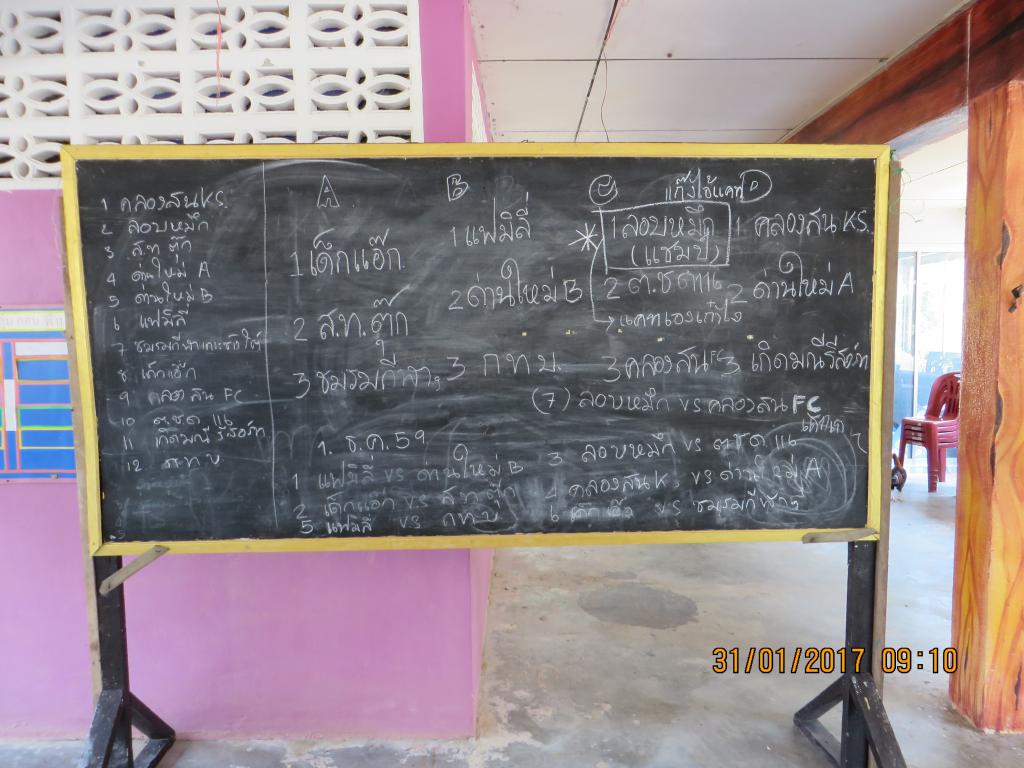 1 คลองสน KS.
2 ลอบหมึก
3 ส.ท. ตุ๊ก
4 ด่านใหม่ A
5 ด่านใหม่ B
6 แฟมิลี่
7 ชมรมกีฬา
8 เด็กแอ๊ก
9 คลองสน FC
10 ต.ช.ด
11 เกิดมณี รีสอร์ท
12 กทบ
A
1 เด็กแอ๊ก
2 ส.ท. ตุ๊ก
3 ชมรมกีฬาฯ
B
1 แฟมิลี่
2 ด่านใหม่ B
3 ก ท บ
C
1 ลอบหมึก
(แชมป์)
2 ต.ช.ด
3 คลองสน FC
D
1. คลองสน KS.
2 ด่านใหม่ A
3 เกิดมณีรีสอร์ท
(7) ลอบหมึก vs คลองสน FC
1. ธ.ค. 59
1 แฟมิลี่ vs ด่านใหม่ B
2 เด็กแอ๊ก vs ส.ท. ตุ๊ก
5 แฟมิลี่ vs กทบ
3 ลอบหมึก vs ตชด
4 คลองสน KS vs ด่านใหม่ (A)
6 เด็กแอ๊ก vs ชมรมกีฬา
31/01/2017 09:10